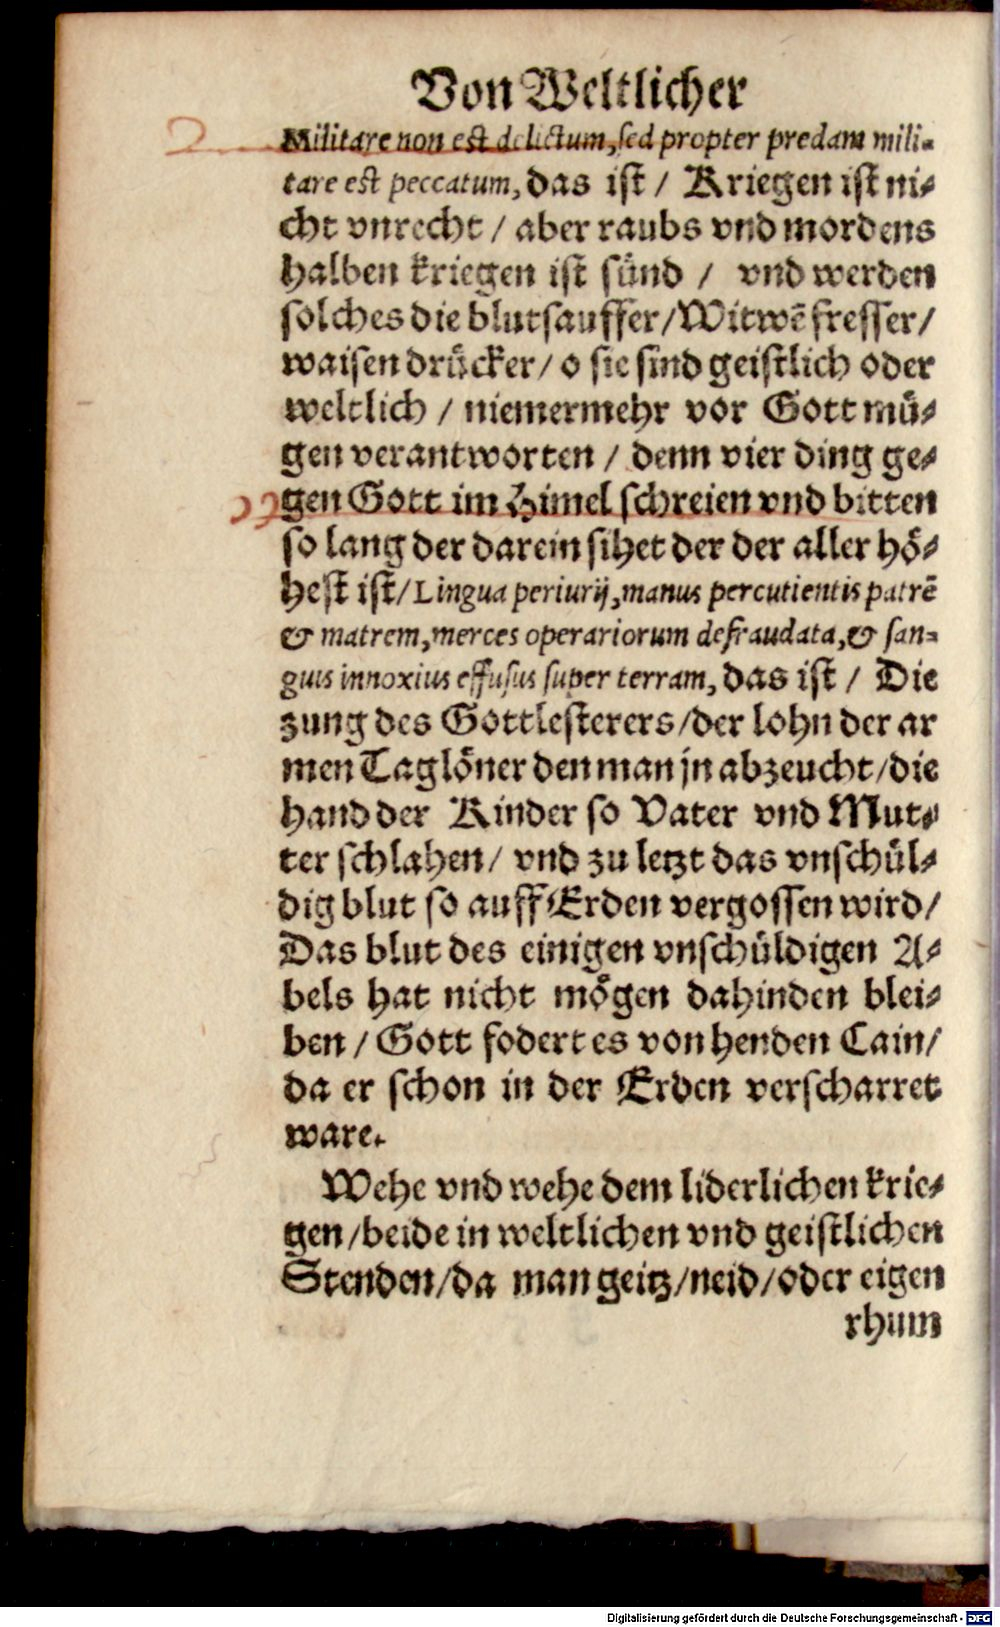 Von Weltlicher
Militare non est delictum, sed propter predam mili-
tare est peccatum, das ist / Kriegen ist ni-
cht vnrecht / aber raubs vnd mordens
halben kriegen ist sünd / vnd werden
solches die blutsauffer / Witwē fresser /
waisen drücker / o sie sind geistlich oder
weltlich / niemermehr vor Gott mü-
gen verantworten / denn vier ding ge-
gen Gott im Himel schreien vnd bitten
so lang der darein sihet der der aller hö-
hest ist / Lingua periurij, manus percutientis patrē
& matrem, merces operariorum defraudata, & san-
guis innoxius effusus super terram, das ist / Die
zung des Gottlesterers / der lohn der ar
men Taglöner den man jn abzeucht / die
hand der Kinder so Vater vnd Mut-
ter schlahen / vnd zu letzt das vnschül-
dig blut so auff Erden vergossen wird /
Das blut des einigen vnschüldigen A-
bels hat nicht mögen dahinden blei-
ben / Gott fodert es von henden Cain /
da er schon in der Erden verscharret
ware.
Wehe vnd wehe dem liderlichen krie-
gen / beide in weltlichen vnd geistlichen
Stenden / da man geitz / neid / oder eigen
rhum
Digitalisierung gefördert durch die Deutsche Forschungsgemeinschaft - DFG